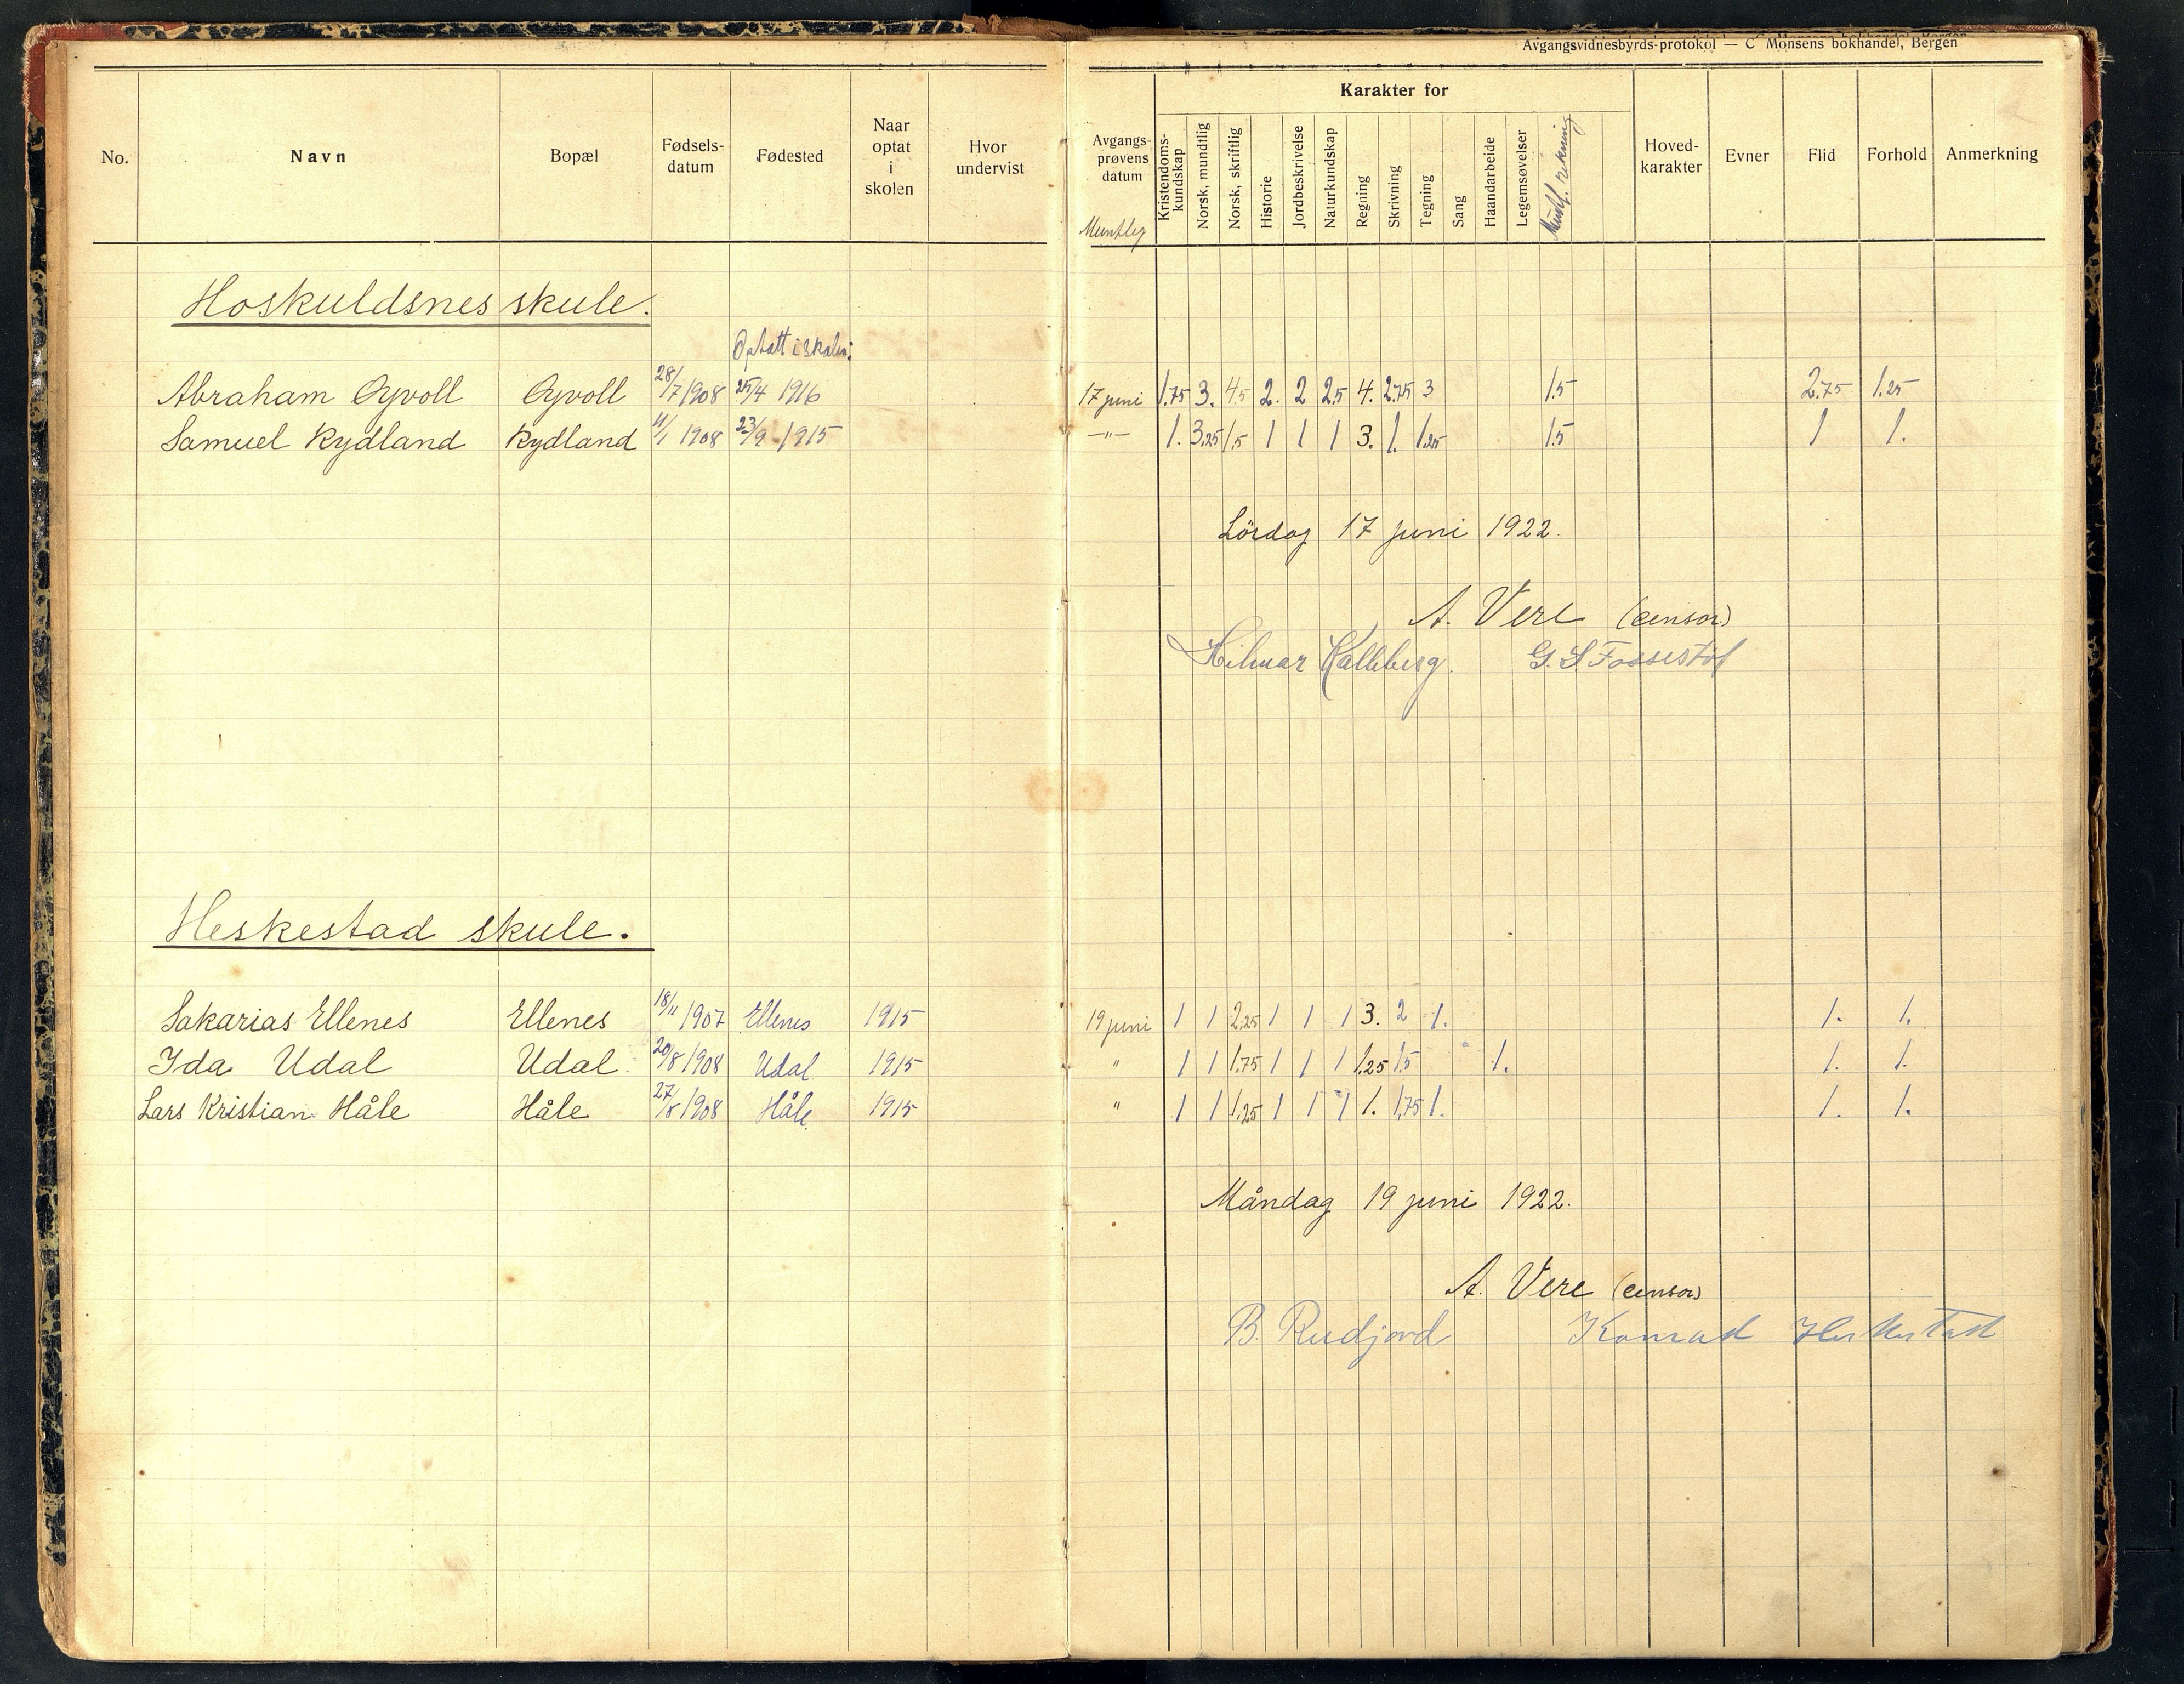 Avgangsvidnesbyrds-protokol — C Monsens bokhandel, Bergen
No. Navn Bopæl Fødsels-datum Fødested Naar optat i skolen Hvor undervist Avgangs-prøvens datum Karakter for Hoved-karakter Evner Flid Forhold Anmerkning
Muntleg Kristendoms-kundskap Norsk, mundtlig Norsk, skriftlig Historie Jordbeskrivelse Naturkundskap Regning Skrivning Tegning Sang Haandarbeide Legemsøvelser Muntl. rekning
Hoskuldsnes skule.
Optatt i skolen:
Abraham Øyvoll Øyvoll 28/7 1908 25/4 1916 17 juni 1.75 3. 4.5 2. 2 2,5 4. 2.75 3 1.5 2.75 1.25
Samuel Rydland Rydland 11/1 1908 23/9 1915 —"— 1. 3,25 1.5 1 1 1 3. 1. 1.25 1.5 1 1.
Lördag 17 juni 1922.
A. Vere (censor)
Hilmar Kalleberg. G. S Fossestøl
Heskestad skule.
Sakarias Ellenes Ellenes 18/11 1907 Ellenes 1915 19 juni 1 1 2,25 1 1 1 3. 2 1. 1. 1.
Ida Udal Udal 20/8 1908 Udal 1915 " 1 1 1.75 1 1 1 1.25 1.5 " 1. 1. 1.
Lars Kristian Håle Håle 27/8 1908 Håle 1915 " 1 1 1,25 1 1 1 1. 1,75 1. 1. 1.
Måndag 19 juni 1922.
A. Vere (censor)
B. Rudjord Konrad Heskestad